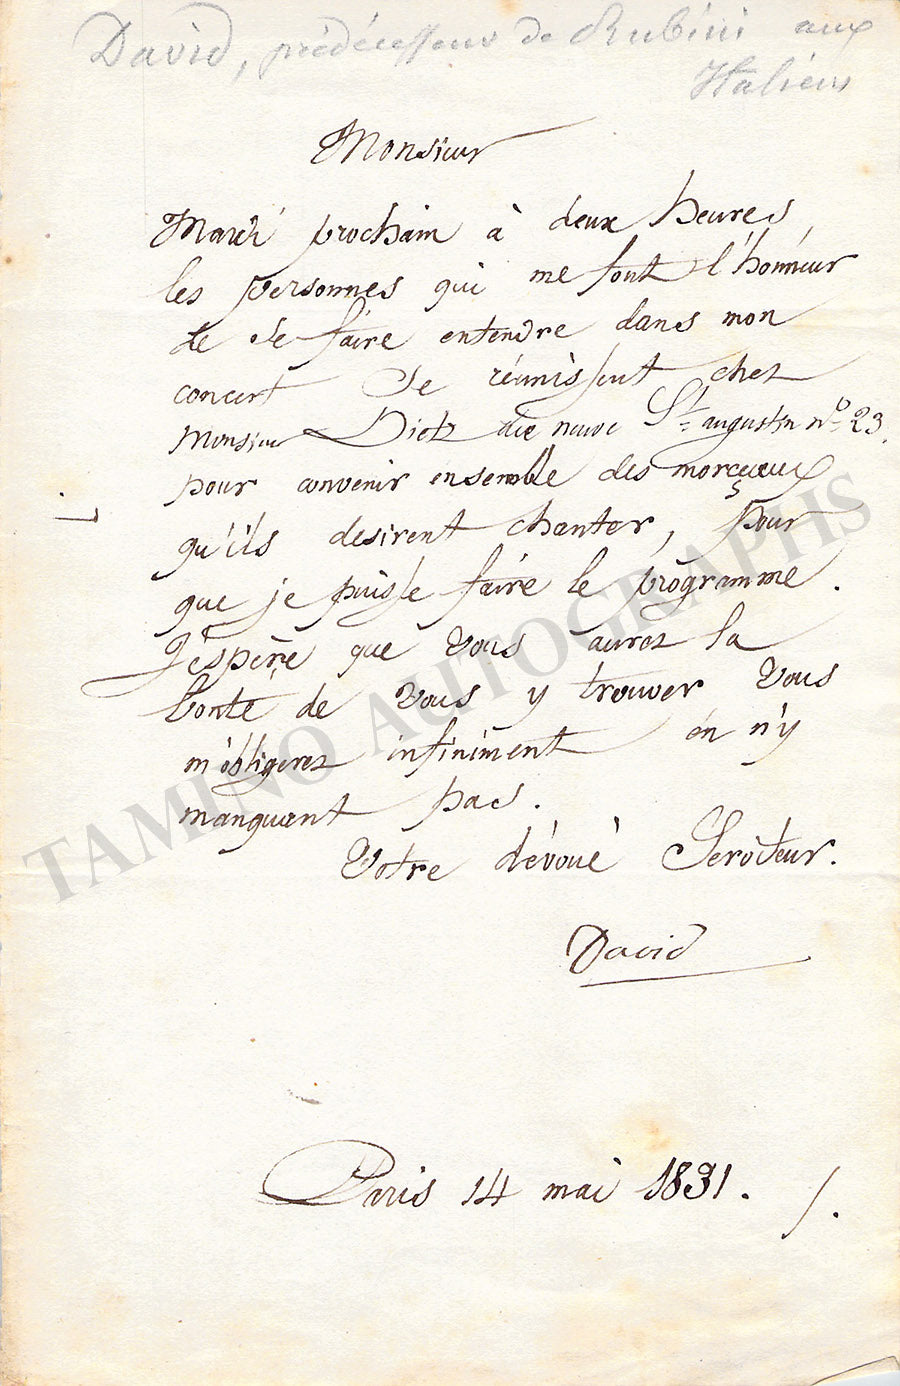 David, prédécesseur de Rubini aux
Italiens
Monsieur
Mardi prochain à deux heures,
les personnes qui me font l'honneur
de se faire entendre dans mon
concert se réunissent chez
Monsieur Dietz rue neuve St. augustin no. 23.
pour convenir ensemble des morçeaux
qu'ils desirent chanter, pour
que je puisse faire le programme.
J'espère que vous aurez la
bonté de vous y trouver vous
m'obligerez infiniment en n'y
manquant pas.
Votre dévoué Serviteur.
David
Paris 14 mai 1831.
TAMINO AUTOGRAPHS